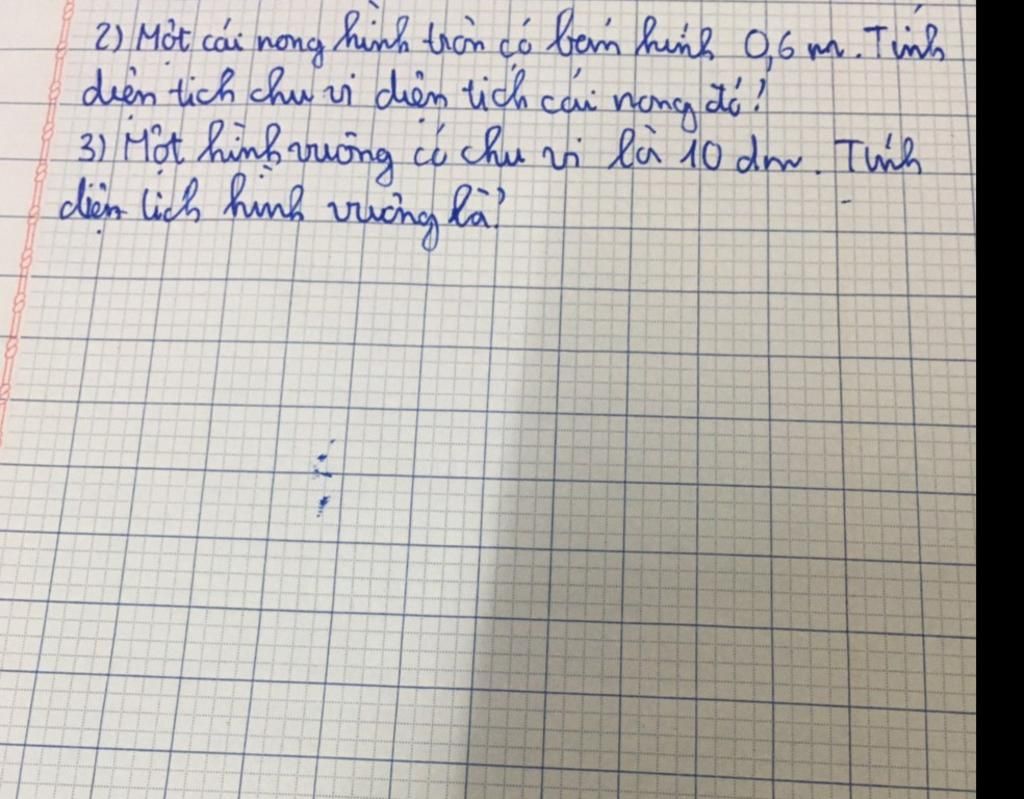 2) Một cái nong hình tròn có bán kính 0,6 m. Tính
diện tích chu vi diện tích cái nong đó?
3) Một hình vuông có chu vi là 10 dm. Tính
diện tích hình vuông là?